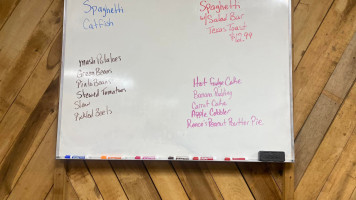 Spaghetti
Catfish
Mash Potatoes
Green Beans
Pinto Beans
Stewed Tomatoes
Slaw
Pickled Beets
Spaghetti
w/ Salad Bar
Texas Toast
$12.99
Hot Fudge Cake
Banana Pudding
Carrot Cake
Apple Cobbler
Reese's Peanut Butter Pie